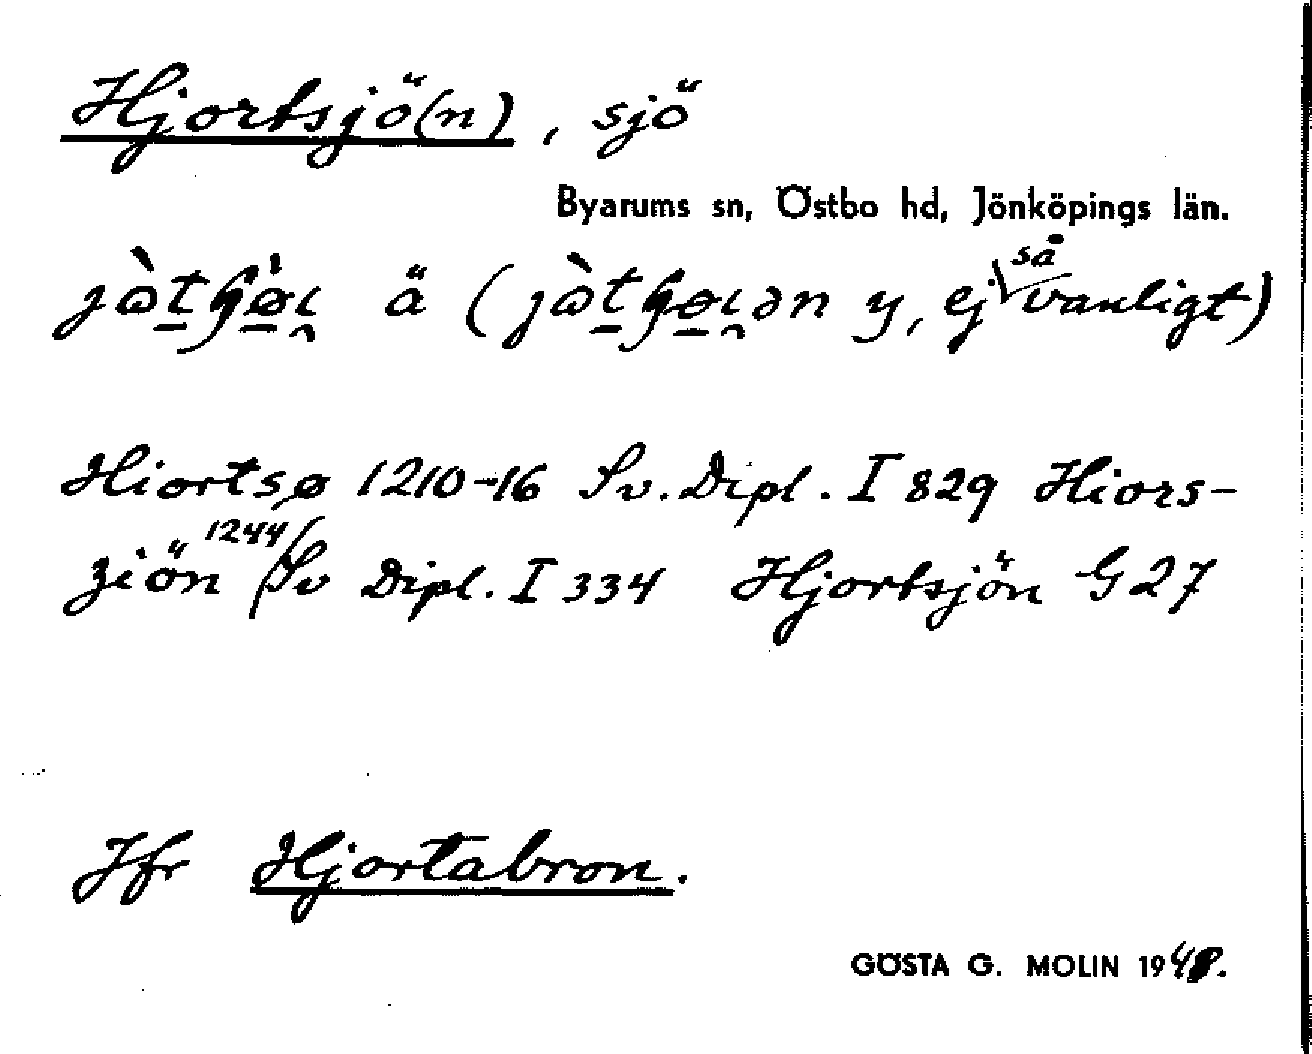 Hjortsjö(n), sjö
Byarums sn, Östbo hd, Jönköpings län.
ä ( y, ej så vanligt)
Hiortsø 1210-16 Sv. Dipl. I 829 Hiors-
ziön 1244 Sv Dipl. I 334 Hjortsjön G 27
Jfr Hjortabron.
GÖSTA G. MOLIN 1948.